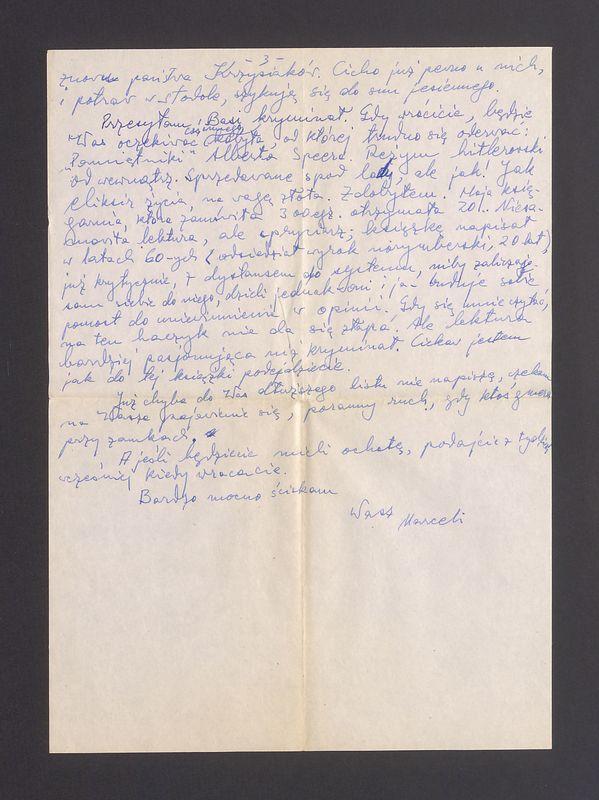 - 3 -
znowu państwa Krzysiaków. Cicho już pewno u nich,
i potraw w stodole, szykują się do snu jesiennego.
Przesyłam i Basi kryminał. Gdy wrócicie, będzie
Was oczekiwać od której trudno się oderwać:
"Pamiętniki" Alberta Speera. Reżym hitlerowski
od wewnątrz. Sprzedawane spod lady, ale jak! Jak
eliksir życia, na wagę złota. Zdobyłem. Moja księ-
garnia, która zamówiła 300 egz. otrzymała 20!. Niesa-
mowita lektura, ale książkę napisał
w latach 60-ych (odsiedział wyrok norymberski, 20 lat),
już krytycznie, z dystansem do systemu, niby zaliczając
sam siebie do niego, dzieli jednak oni i ja - buduje sobie
pomost do uniewinnienia w opinii. Gdy się umie czytać,
na ten haczyk nie da się złapać. Ale lektura
bardziej pasjonująca niż kryminał. Ciekaw jestem
jak do tej książki podejdziecie.
Już chyba do Was dłuższego listu nie napiszę, czekam
na Wasze pojawienie się, poranny ruch, gdy ktoś
przy zamkach.
A jeśli będziecie mieli ochotę, podajcie z tydzień
wcześniej kiedy wracacie.
Bardzo mocno ściskam
Wasz
Marceli